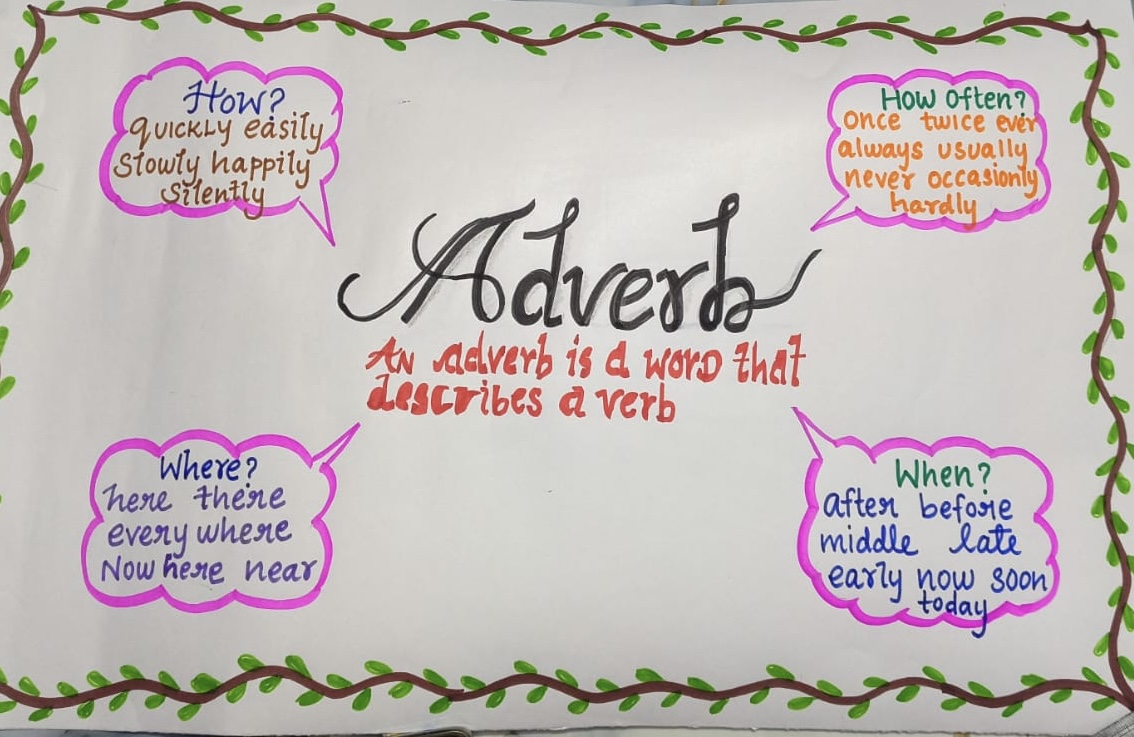 How?
quickly easily
slowly happily
silently
How Often?
once twice ever
always usually
never occasionly
hardly
Adverb
An adverb is a word that
describes a verb
Where?
here there
every where
Now here near
When?
after before
middle late
early now soon
today